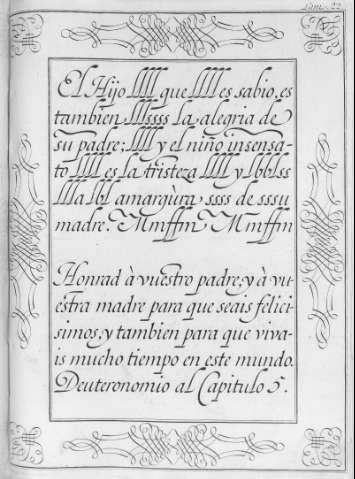 Lam. 22.
El Hijo llll que llll es sabio, es
tambien lllssss la alegria de
su padre; llll y el niño insensa-
to llll es la tristeza llll y lblblss
llla lbl amargùra ssss de sssu
madre. Mmffm Mmffm
Honrad à vuestro padre; y à vu
estra madre para que seais felici
simos; y tambien para que viva-
is mucho tiempo en este mundo.
Deuteronomio al Capitulo 5.